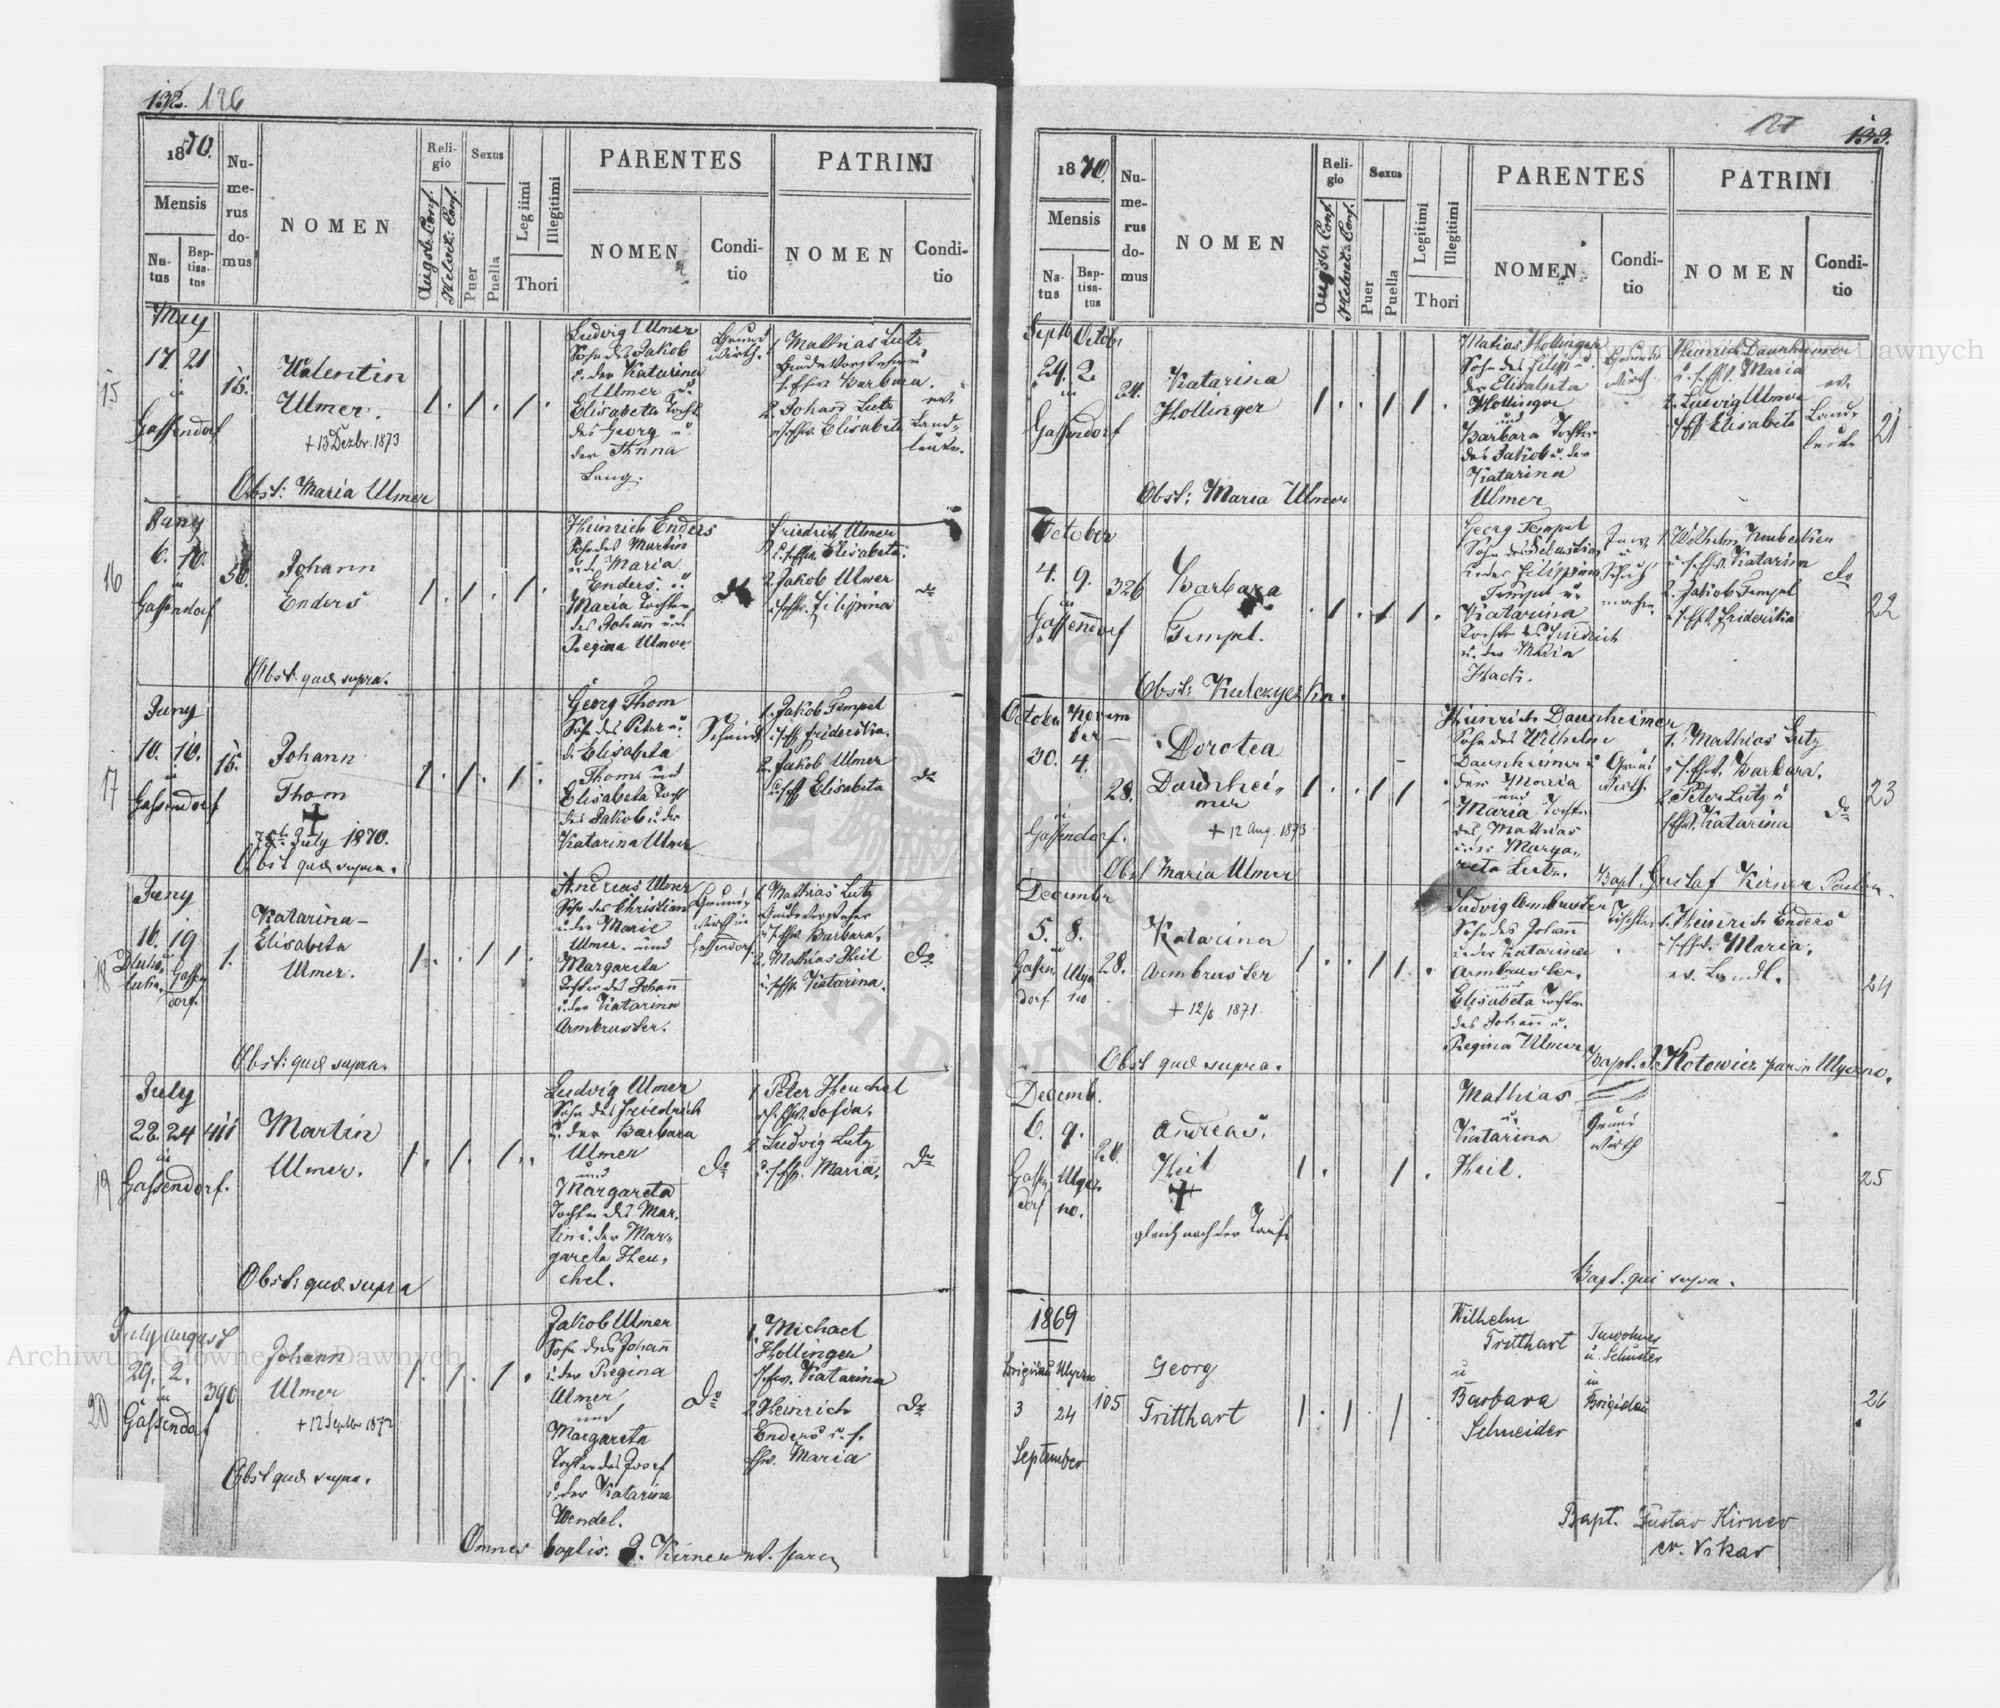 132. 126
1870.
Mensis
Na-
tus
Bap-
tisa-
tus
Nu-
me-
rus
do-
mus
NOMEN
Reli-
gio
Augsb. Conf.
Helvet. Conf.
Sexus
Puer
Puella
Legiimi
Illegitimi
Thori
PARENTES
NOMEN
Condi-
tio
PATRINI
NOMEN
Condi-
tio
15
May
17. 21
in
Gassendorf
15.
Valentin
Ulmer.
+ 13 Dezbr. 1873
Ludwig Ulmer
Sohn des Jakob
u. der Katarina
Ulmer u.
Elisabeta Tocht.
des Georg u.
der Anna
Lang.
Grund
wirth.
1. Mathias Lutz
s. Ehw. Barbara.
2. Johann Lutz
u. s. Ehw. Elisabeta
ev.
Land-
leute.
Obst: Maria Ulmer
16
Juny
6. 10.
in
Gassendorf
56.
Johann
Enders
Heinrich Enders
Sohn des Martin
u. d. Maria
Enders. u.
Maria Tochter
des Johann und
Regina Ulmer.
do
Friedrich Ulmer
u. s. Ehw. Elisabeta.
2. Jakob Ulmer
u. s. Ehw. Filippina
do
Obst. quae supra.
17
Juny
10. 10.
in
Gassendorf
15.
Johann
Thom
July 1870.
Georg Thom
Sohn des Peter u.
d. Elisabeta
Thom und
Elisabeta Tocht
des Jakob u. der
Katarina Ulmer
Schmidt
1. Jakob Tempel
u. s. Eh. Friderika.
2. Jakob Ulmer
u. s. Eh Elisabeta
do
Obst quae supra.
18
Juny
16. 19
Gassen
dorf.
1.
Katarina-
Elisabeta
Ulmer.
Andreas Ulmer
Sohn des Christian
u. der Marie
Ulmer. und
Margareta
Tochter des Johann
u. der Katarina
Armbruster.
Grund-
wirth in
Gassendorf.
1. Mathias Lutz
u. s. Ehw. Barbara.
2. Mathias Heit
u. s. Ehw. Katarina.
do
Obst: quae supra.
19
July
22. 24
in
Gassendorf.
411
Martin
Ulmer.
Ludwig Ulmer
Sohn des Friedrich
u. der Barbara
Ulmer
und
Margareta
Tochter des Mar-
tin u. der Mar-
gareta Heu-
chel.
do
1. Peter Heuchel
u. s. Ehw. Sofia.
2. Ludwig Lutz
u. s. Ehw. Maria.
do
Obst: quae supra
20
July August
29. 2.
in
Gassendorf
390
Johann
Ulmer
+ 12 Septbr 1872
Jakob Ulmer
Sohn des Johann
u. der Regina
Ulmer
und
Margareta
Tochter des Josef
u. der Katarina
Wendel.
do
1. Michael
Hollinger
s. Ehw. Katarina
2. Heinrich
Enders u. s.
Ehw. Maria
do
Obst quae supra.
Omnes baptis. J. Kirner
127 133.
1870.
Mensis
Na-
tus
Bap-
tisa-
tus
Nu-
me-
rus
do-
mus
NOMEN
Reli-
gio
Augsb. Conf.
Helvet. Conf.
Sexus
Puer
Puella
Legitimi
Illegitimi
Thori
PARENTES
NOMEN
Condi-
tio
PATRINI
NOMEN
Condi-
tio
Septb Octobr
29. 2.
in
Gassendorf
24.
Katarina
Hollinger
Matias Hollinger
Sohn des Filipp u.
der Elisabeta
Hollinger
und
Barbara Tochter
des Jakob u. der
Katarina
Ulmer
Grund
wirth.
Heinrich Daunheimer
u. s. Eht. Maria
2. Ludwig Ulmer
u. s. Eh Elisabeta
ev.
Land-
leute
21
Obst: Maria Ulmer
October
4. 9.
in
Gassendorf
326
Barbara
Tempel.
Georg Tempel
Sohn des Sebastian
u. der Filippina
Tempel u.
Katarina
Tochter des Friedrich
u. der Maria
Hach.
1. Wilhelm
u. s. Ehw. Katarina
2. Jakob Tempel
u. s. Ehw. Friderika
do
22
Obst: Kulczycka.
October Novem
ber
30. 4.
in
Gassendorf.
28.
Dorotea
Daunhei-
mer
+ 12 Aug. 1873
Heinrich Daunheimer
Sohn des Wilhelm
Daunheimer u.
der Maria
und
Maria Tochter
des Mathias
u. der Marga-
reta Lutz.
Grund
wirth.
1. Mathias Lutz
u. s. Ehw. Barbara.
2. Peter Lutz u
s. Ehw. Katarina
do
23
Obst Maria Ulmer
Bapt. Gustaf Kirner
Decembr
5. 8.
in
Gassen
dorf
Ugers
no
28.
Katarina
Armbruster
+ 12/8 1871.
Ludwig Armbruster
Sohn des Johann
u. der Katarina
Armbruster.
und
Elisabeta Tochter
des Johann u.
Regina Ulmer
Tischler
1. Heinrich Enders
u. s. Ehw. Maria.
ev. Landl.
24
Obst quae supra.
Bapt. J. Kotowicz par. in Ugersno.
Decemb.
6. 9.
Gassen
dorf
Ugers
no.
20.
Andreas.
Heit
gleich nach der Taufe
Mathias
u.
Katarina
Heit.
Grund
wirth
25
Bapt. qui supra.
1869
Brigidau Ugersno
3 24
September
105
Georg
Tritthart
Wilhelm
Tritthart
u
Barbara
Schneider
Inwohner
u. Schuster
in
Brigidau
26
Bapt. Gustav Kirner
ev. Vikar
Archiwum Główne Akt Dawnych
Archiwum Główne Akt Dawnych